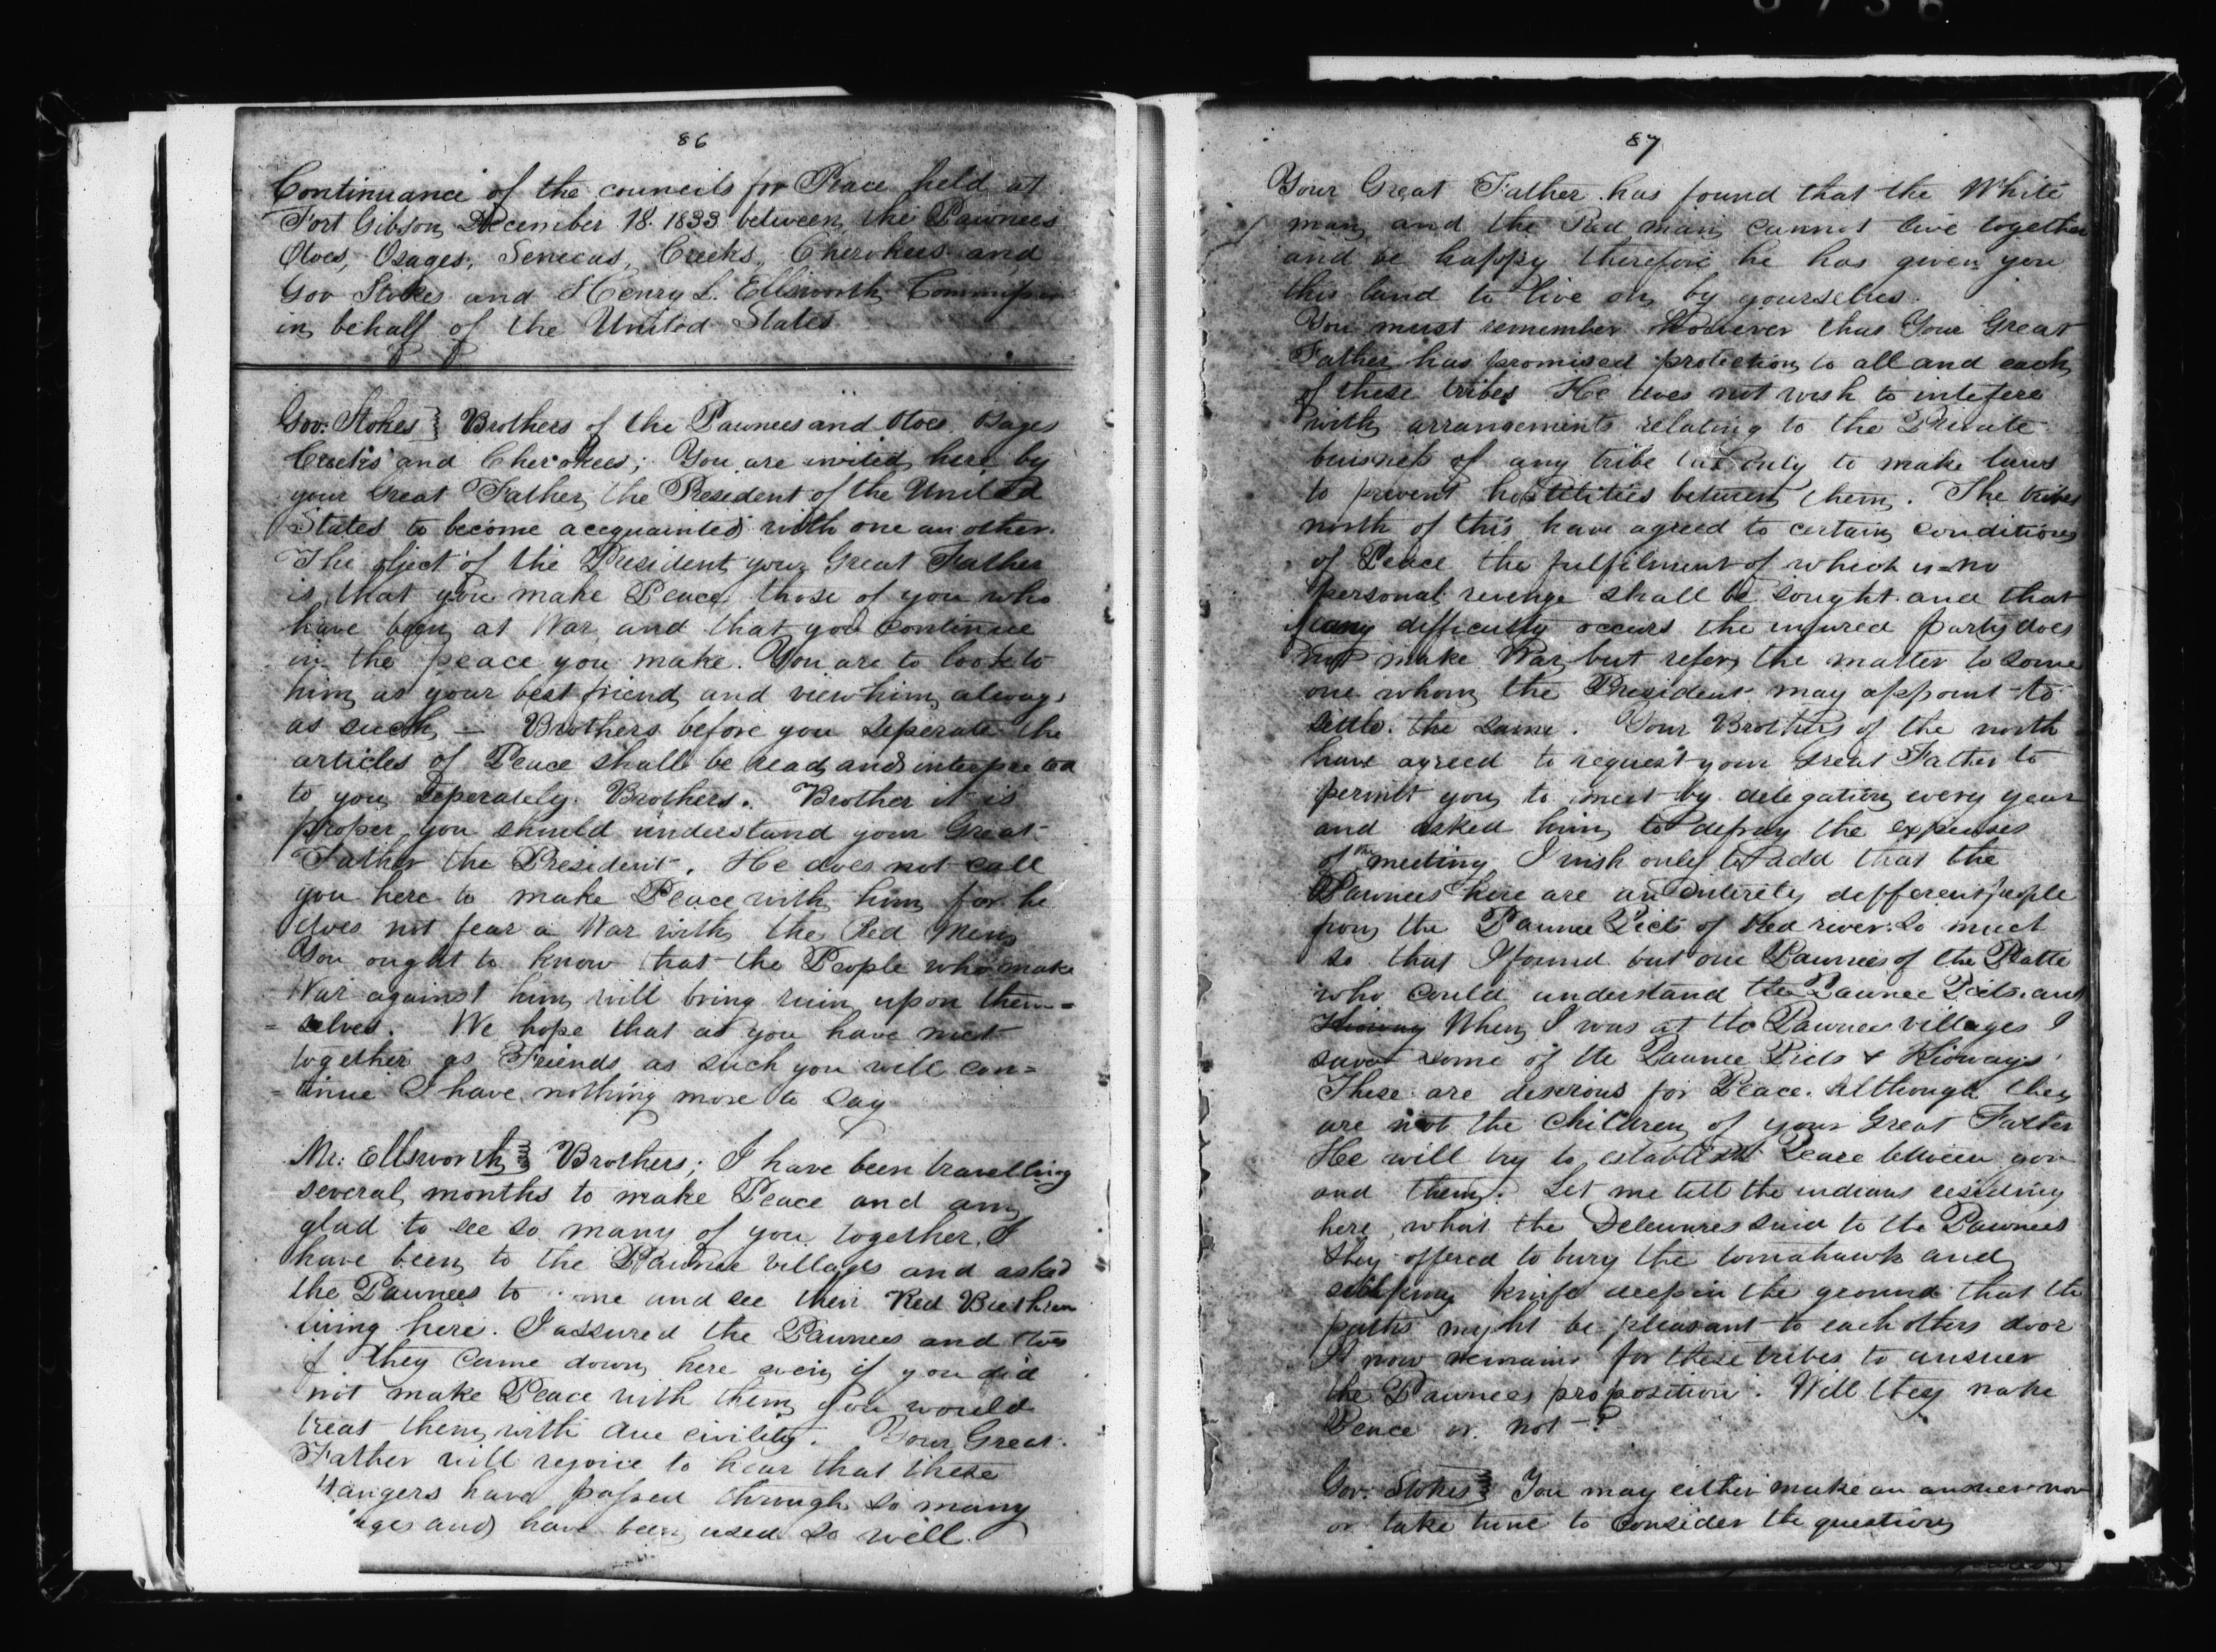 86
Continuance of the councils for Peace held at
Fort Gibson December 18. 1833 between the Pawnees
Otoes, Osages, Senecas, Creeks, Cherokees and
Gov Stokes and Henry L. Ellsworth
in behalf of the United States
Gov: Stokes } Brothers of the Pawnees and Otoes Osages
Creeks and Cherokees; You are invited here by
your Great Father the President of the United
States to become acequainted with one an other.
The object of the President your Great Father
is that you make Peace those of you who
have been at War and that you continue
in the peace you make. You are to look to
him as your best friend and view him always
as such — Brothers before you seperate the
articles of Peace shall be read and interpreted
to you seperately. Brothers. Brother it is
proper you should understand your Great
Father the President. He does not call
you here to make Peace with him for he
does not fear a War with the Red Men
You ought to know that the People who make
War against him will bring ruin upon them=
=selves. We hope that as you have met
together as Friends as such you will con=
=tinue I have nothing more to say
Mr: Ellsworth } Brothers; I have been travelling
several months to make Peace and am
glad to see so many of you together. I
have been to the Pawnee villages and asked
the Pawnees to come and see their Red Brethren
living here. I assured the Pawnees and Otoes
if they came down here even if you did
not make Peace with them you would
treat them with due civility. Your Great
Father will rejoice to hear that these
strangers have passed through so many
and have been used so well.
87
Your Great Father has found that the White
man and the Red man cannot live together
and be happy therefore he has given you
this land to live on by yourselves.
You must remember However that Your Great
Father has promised protection to all and each
of these tribes He does not wish to intefere
with arrangements relating to the Private
buisness of any tribe but only to make laws
to prevent hostilities between them. The tribes
north of this have agreed to certain conditions
of Peace the fulfilment of which is no
personal revenge shall be sought and that
if any difficulty occurs the injured party does
not make War but refers the matter to some
one whom the President may appoint to
settle the same. Your Brothers of the north
have agreed to request your Great Father to
permit you to meet by delegation every year
and asked him to defray the expenses
of the meeting I wish only to add that the
Pawnees here are an entirely defferent people
from the Pawnee Picts of Red river. So much
so that I found but one Pawnees of the Platte
who could understand the Pawnee Picts. and
Kioway When I was at the Pawnee villages I
saw some of the Pawnee Picts & Kioways
These are desirous for Peace. Although they
are not the children of your Great Father
He will try to establish Peace between you
and them. Let me tell the indians residing
here what the Delewares said to the Pawnees
they offered to bury the tomahawk and
knife deep in the ground that the
paths might be pleasant to each others door
It now remains for these tribes to answer
the Pawnees proposition. Will they make
Peace or not —?
Gov: Stokes } You may either make an answer now
or take time to consider the question